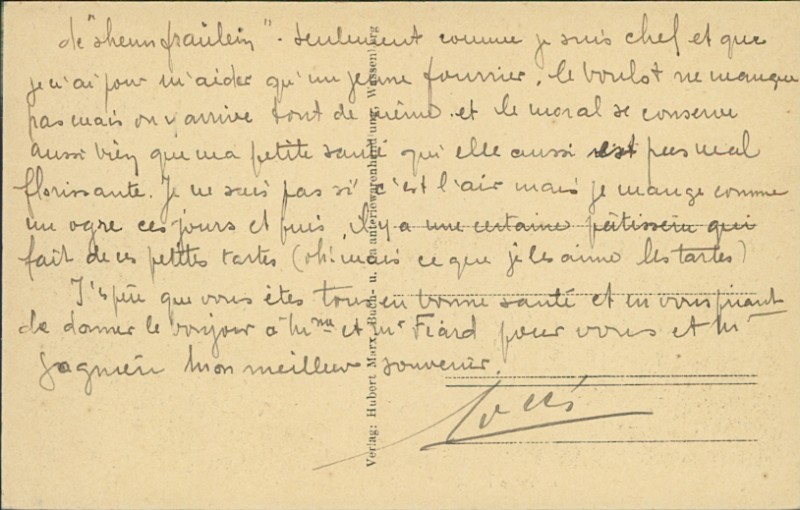 de "shenn fräulein". Seulement comme je suis chef et que
je n'ai pour m'aider qu'un jeune fourrier, le boulot ne manque
pas mais on y arrive tout de même. et le moral se conserve
aussi bien que ma petite santé qui elle aussi est pas mal
florissante. Je ne sais pas si c'est l'air mais je mange comme
un ogre ces jours et puis, il y a une certaine pâtisserie qui
fait de ces petites tartes (oh! mais ce que je les aime les tartes)
J'espère que vous êtes tous en bonne santé et en vous priant
de donner le bonjour à Mme et Mr Fiard pour vous et Mr
mon meilleur souvenir.
Verlag: Hubert Marx, Buch- u. Galanteriewarenhandlung, Wassenberg